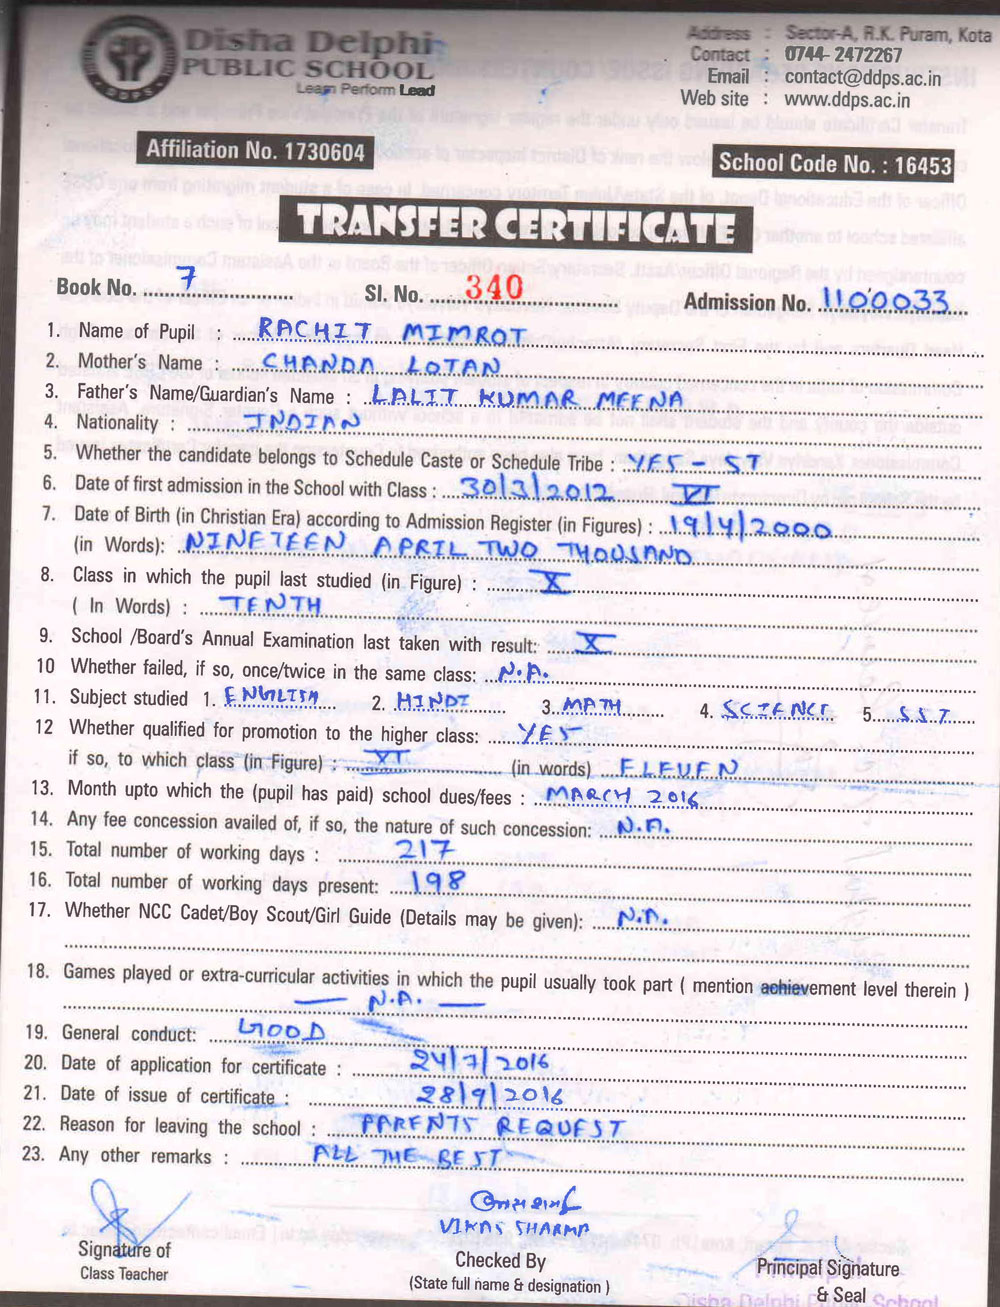 Disha Delphi
PUBLIC SCHOOL
Learn Perform Lead
DDPS
Address : Sector-A, R.K. Puram, Kota
Contact : 0744-2472267
Email : contact@ddps.ac.in
Web site : www.ddps.ac.in
Affiliation No. 1730604
School Code No. : 16453
TRANSFER CERTIFICATE
Book No. 7 Sl. No. 340 Admission No. 1100033
1. Name of Pupil : RACHIT MIMROT
2. Mother's Name : CHANDA LOTAN
3. Father's Name/Guardian's Name : LALIT KUMAR MEENA
4. Nationality : INDIAN
5. Whether the candidate belongs to Schedule Caste or Schedule Tribe : YES - ST
6. Date of first admission in the School with Class : 30/3/2012 VI
7. Date of Birth (in Christian Era) according to Admission Register (in Figures) : 19/4/2000
(in Words): NINETEEN APRIL TWO THOUSAND
8. Class in which the pupil last studied (in Figure) : X
( In Words) : TENTH
9. School /Board's Annual Examination last taken with result: X
10 Whether failed, if so, once/twice in the same class: N.A.
11. Subject studied 1. ENGLISH 2. HINDI 3. MATH 4. SCIENCE 5. SST
12 Whether qualified for promotion to the higher class: YES
if so, to which class (in Figure) : XI (in words) ELEVEN
13. Month upto which the (pupil has paid) school dues/fees : MARCH 2016
14. Any fee concession availed of, if so, the nature of such concession: N.A.
15. Total number of working days : 217
16. Total number of working days present: 198
17. Whether NCC Cadet/Boy Scout/Girl Guide (Details may be given): N.A.
18. Games played or extra-curricular activities in which the pupil usually took part ( mention achievement level therein )
— N.A. —
19. General conduct: GOOD
20. Date of application for certificate : 24/7/2016
21. Date of issue of certificate : 28/9/2016
22. Reason for leaving the school : PARENTS REQUEST
23. Any other remarks : ALL THE BEST
VIKAS SHARMA
Signature of
Class Teacher
Checked By
(State full name & designation )
Principal Signature
& Seal
Principal
Disha Delphi Public School